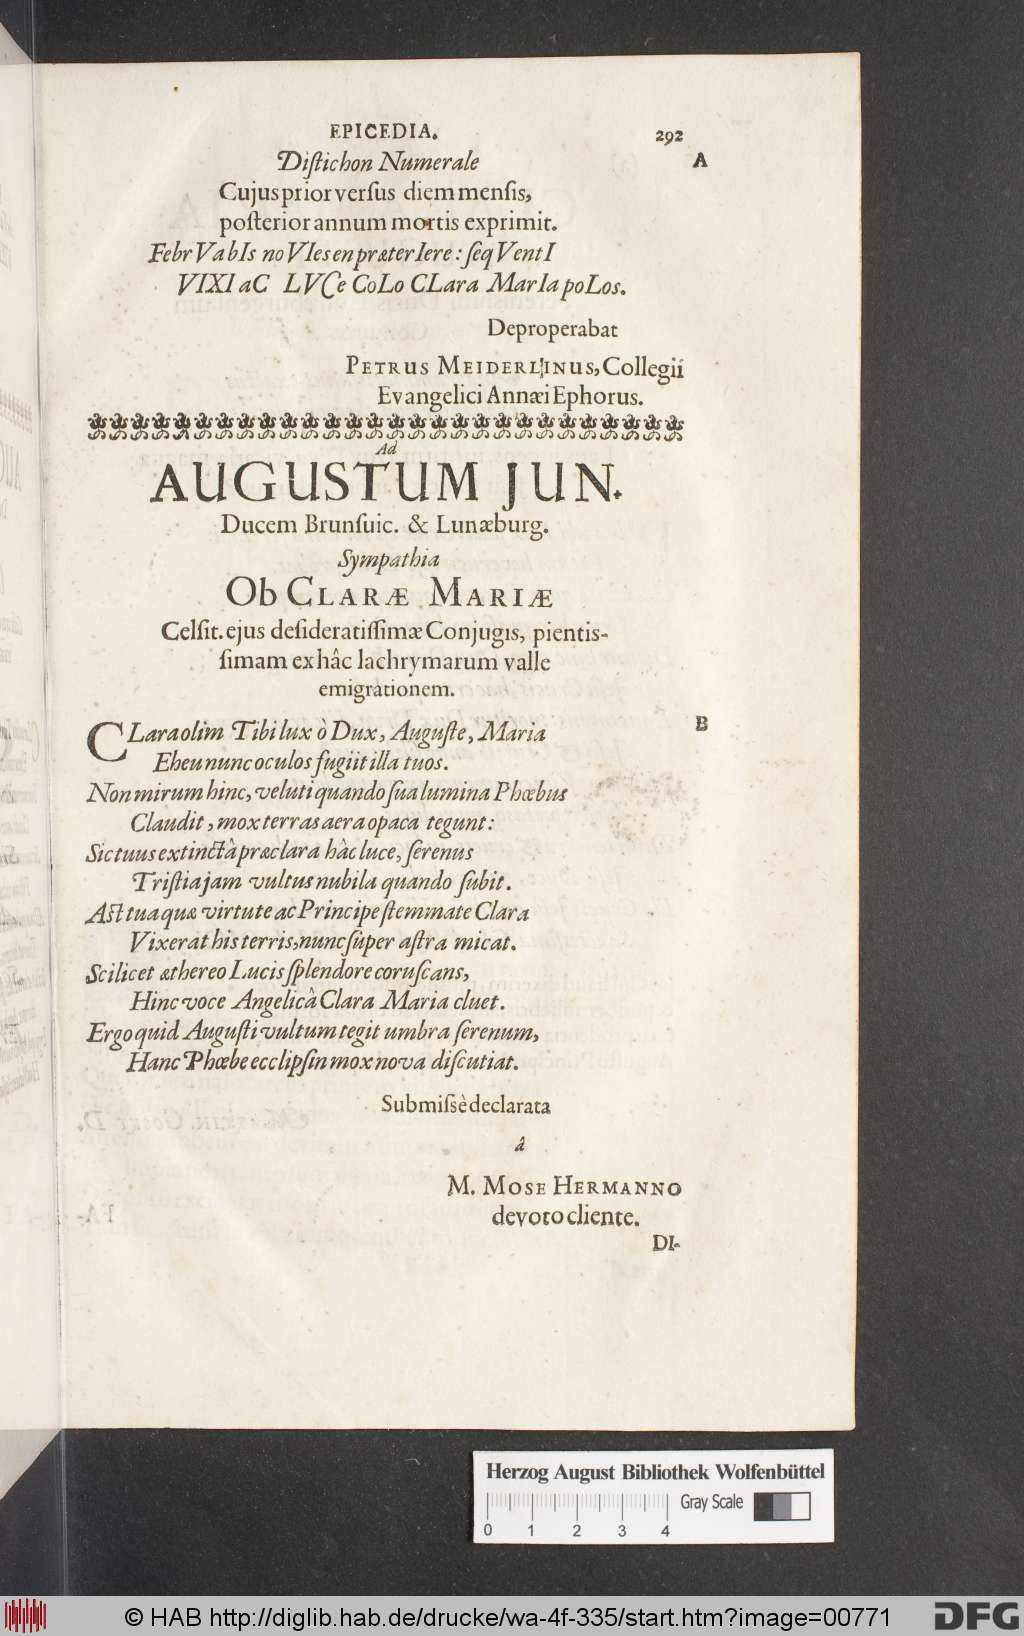 EPICEDIA. 292
Diſtichon Numerale A
Cujus prior verſus diem menſis,
poſterior annum mortis exprimit.
Febr VabIs no VIes en præterIere: ſeq VentI
VIXI aC LVCe CoLo CLara MarIa poLos.
Deproperabat
PETRUS MEIDERLINUS, Collegii
Evangelici Annæi Ephorus.
Ad
AUGUSTUM JUN.
Ducem Brunſuic. & Lunæburg.
Sympathia
Ob CLARÆ MARIÆ
Celſit. ejus deſideratiſſimæ Conjugis, pientis-
ſimam ex hâc lachrymarum valle
emigrationem.
CLara olim Tibi lux ò Dux, Auguſte, Maria B
Eheu nunc oculos fugiit illa tuos.
Non mirum hinc, veluti quando ſua lumina Phœbus
Claudit, mox terras aera opaca tegunt:
Sic tuus extinctâ præclara hâc luce, ſerenus
Triſtia jam vultus nubila quando ſubit.
Aſt tua quæ virtute ac Principe ſtemmate Clara
Vixerat his terris, nunc ſuper aſtra micat.
Scilicet æthereo Lucis ſplendore coruſcans,
Hinc voce Angelicâ Clara Maria cluet.
Ergo quid Auguſti vultum tegit umbra ſerenum,
Hanc Phœbe ecclipſin mox nova diſcutiat.
Submiſsè declarata
â
M. MOSE HERMANNO
devoto cliente.
DI-
Herzog August Bibliothek Wolfenbüttel
Gray Scale
0 1 2 3 4
© HAB http://diglib.hab.de/drucke/wa-4f-335/start.htm?image=00771 DFG